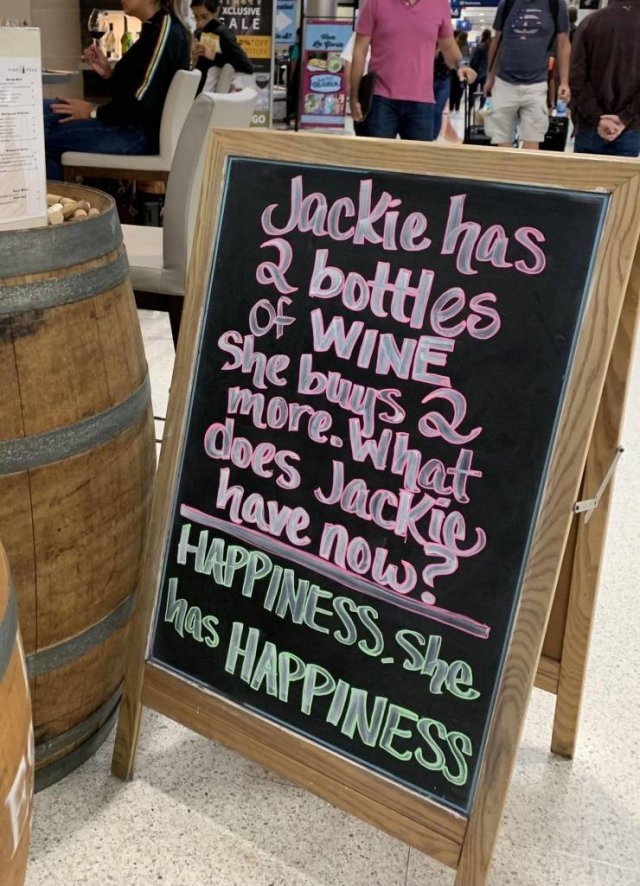 XCLUSIVE
SALE
GO
Jackie has
2 bottles
of WINE
She buys 2
more. What
does Jackie
have now?
HAPPINESS. She
has HAPPINESS